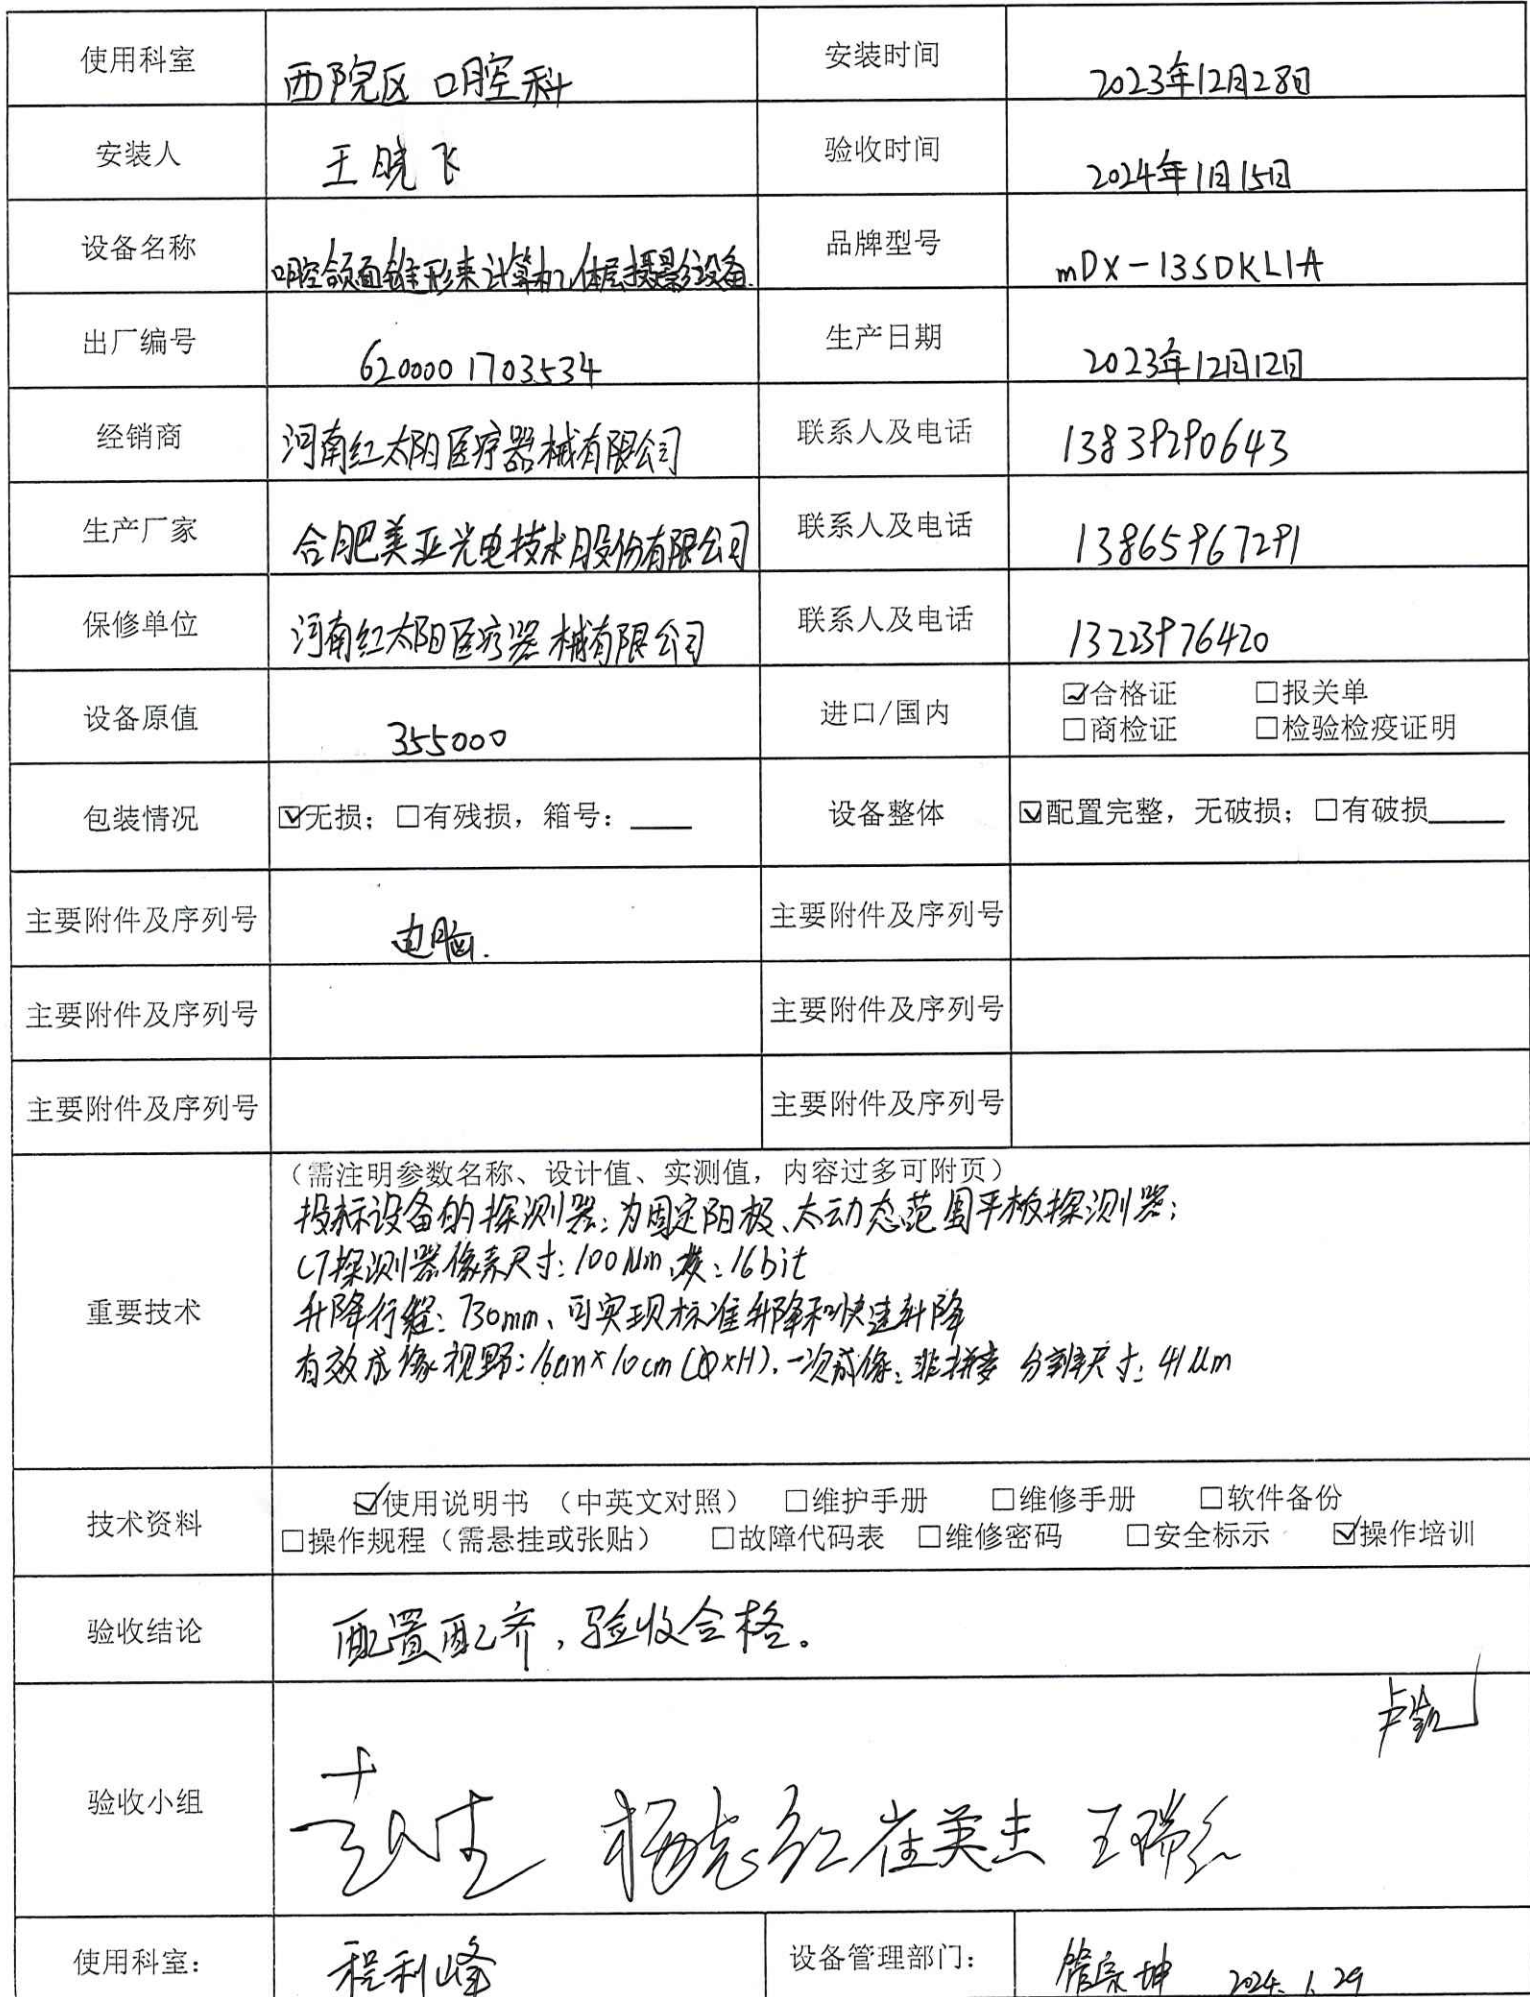 使用科室 西院区 口腔科 安装时间 2023年12月28日
安装人 王晓飞 验收时间 2024年1月15日
设备名称 口腔颌面锥形束计算机体层摄影设备. 品牌型号 mDX-13SDKL1A
出厂编号 6200001703534 生产日期 2023年12月12日
经销商 河南红太阳医疗器械有限公司 联系人及电话 13839290643
生产厂家 合肥美亚光电技术股份有限公司 联系人及电话 13865967291
保修单位 河南红太阳医疗器械有限公司 联系人及电话 13223976420
设备原值 355000 进口/国内 ☑合格证 □报关单
□商检证 □检验检疫证明
包装情况 ☑无损；□有残损，箱号：____ 设备整体 ☑配置完整，无破损；□有破损_____
主要附件及序列号 电脑. 主要附件及序列号
主要附件及序列号 主要附件及序列号
主要附件及序列号 主要附件及序列号
（需注明参数名称、设计值、实测值，内容过多可附页）
投标设备的探测器：为固定阳极、大动态范围平板探测器；
CT探测器像素尺寸：100μm、：16bit
重要技术 升降行程：730mm、可实现标准升降和快速升降
有效成像视野：16cm×10cm（Φ×H）、一次成像：非拼接 分辨尺寸：41μm
技术资料 ☑使用说明书（中英文对照） □维护手册 □维修手册 □软件备份
□操作规程（需悬挂或张贴） □故障代码表 □维修密码 □安全标示 ☑操作培训
验收结论 配置配齐，验收合格。
卢凯
验收小组 崔英杰
使用科室： 程利峰 设备管理部门： 管宗坤 2024.1.29